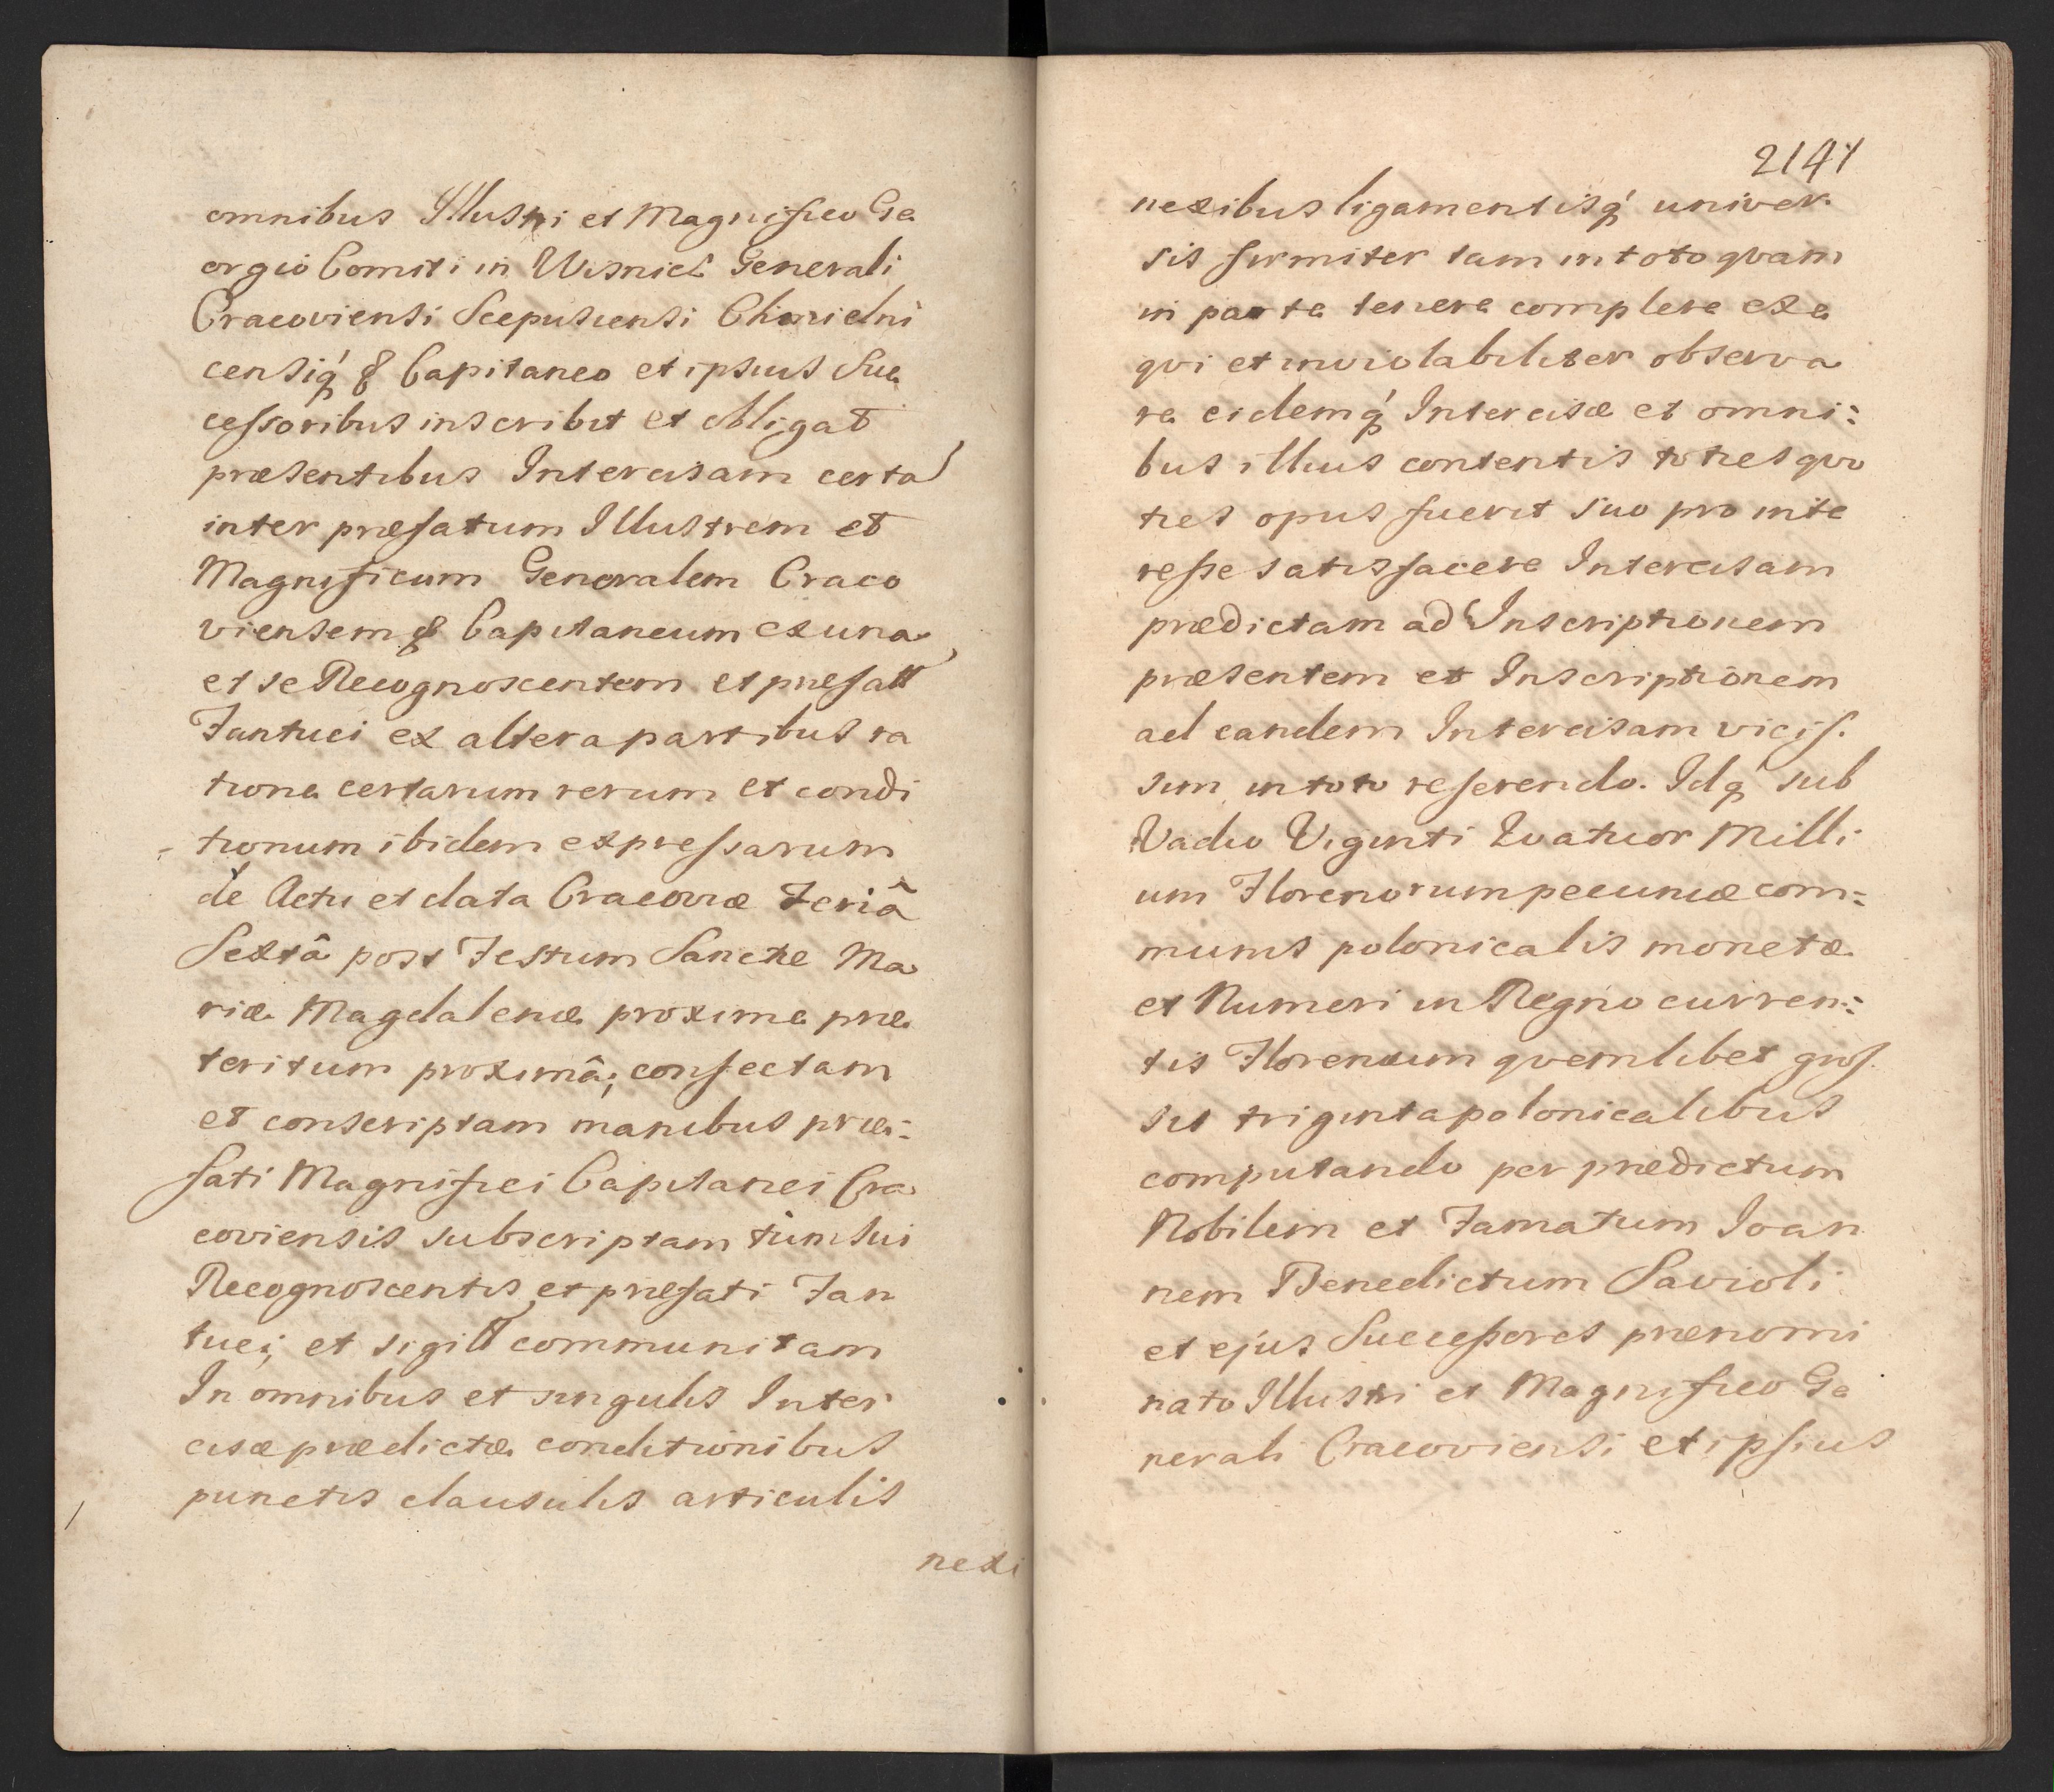 omnibus Illustri et Magnifico Ge
orgio Comiti in Wisnicz Generali
Cracoviensi Scepusiensi Chmielni
censiq́ & Capitaneo et ipsius Suc
cessoribus inscribit et obligat
præsentibus Intercisam certa
inter præfatum Illustrem et
Magnificum Generalem Craco
viensem & Capitaneum ex una
et se Recognoscentem et præfatt
Fantuci ex altera partibus ra
tione certarum rerum et condi
tionum ibidem expressarum
de Actu et data Cracoviæ Feriâ
Sextâ post Festum Sanctæ Ma
riæ Magdalenæ proxime præ
teritum proximâ; confectam
et conscriptam manibus præ:
fati Magnifici Capitanei Cra
coviensis subscriptam tùm sui
Recognoscentis et præfati Fan
tuci; et sigill communitam
In omnibus et singulis Inter
cisæ prædictæ conditionibus
punctis clausulis articulis
nexi
2141
nexibus ligamentisq́ univer
sis firmiter tam in toto qvam
in parte tenere complere exe
qvi et inviolabiliter observa
re eidemq́ Intercisæ et omni:
bus illius contentis toties qvo
ties opus fuerit suo pro inte
resse satisfacere Intercisam
prædictam ad Inscriptionem
præsentem et Inscriptionem
ad eandem Intercisam vicis.
sim in toto referendo. Idq́ sub
Vadio Viginti Qvatuor Milli
um Florenorum pecuniæ com:
munis polonicalis monetæ
et Numeri in Regno curren:
tis Florenum qvemlibet gros.
sis triginta polonicalibus
computando per prædictum
Nobilem et Famatum Ioan
nem Benedictum Savioli
et ejus Successores prænomi
nato Illustri et Magnifico Ge
nerali Cracoviensi et ipsius